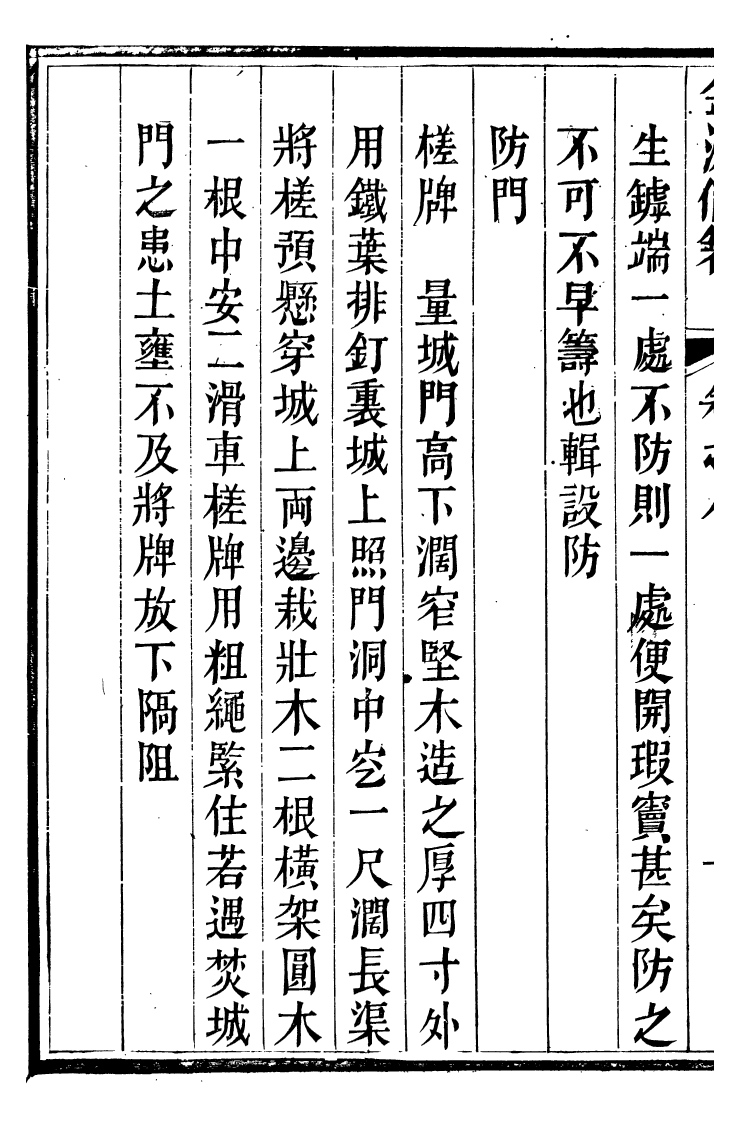 生罅端一處不防則一處便開瑕竇甚矣防之
不可不早籌也輯設防
防門
槎牌　量城門高下濶窄堅木造之厚四寸外
用鐵葉排釘裏城上照門洞中空一尺濶長渠
將槎預懸穿城上兩邊栽壯木二根橫架圓木
一根中安二滑車槎牌用粗繩緊住若遇焚城
門之患土壅不及將牌放下隔阻